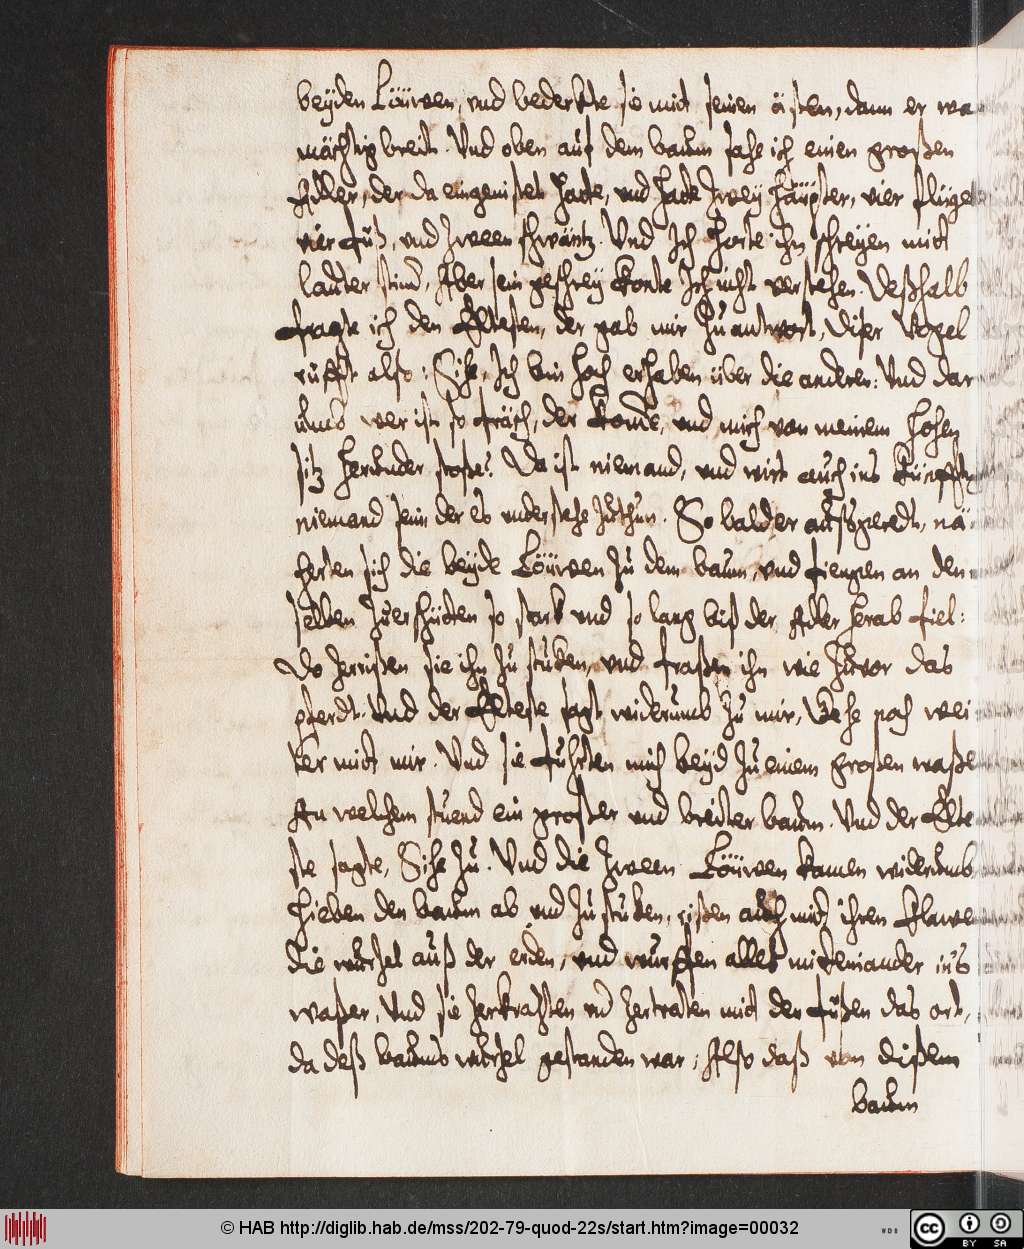 beyden Löuwen, vnd bedeckte sie mitt seinen ästen, dann er wa
mächtig breit. Vnd oben auf dem baum sahe ich einen großen
Adler, der da eingenistet hatte, vnd hatt zwey häupter, vier flügel
vier füß, vnd zween schwäntz. Vnd Ich horte ihn schreyen mitt
lauter stim̄, Aber sein geschrey konte Ich nicht verstehen. Deßhalb
fragte ich den Eltesten, der gab mir zu antwort, diser Vogel
rufft also: Sihe, Ich bin hoch erhaben über die anderen: Vnd dar
umb wer ist so fräch, der kom̄e, vnd mich von meinem hohen
sitz herunder stoße? Da ist niemand, vnd wirt auch ins künfftig
niemand sein der es vnderstehe zuthun. So balder außgeredt, nä
herten sich die beyde Löuwen zu dem baum, vnd fiengen an den
selben zuerschütten so stark vnd so lang biß der Adler herab fiel:
Do zerrißen sie ihn zu stuken, vnd fraßen ihn wie zuvor das
pferdt. Vnd der Elteste sagt widerumb zu mir, Gehe noch wei
ter mitt mir. Vnd sie fuhrten mich beyd zu einem großen waßer
An welchem stuend ein großer vnd breiter baum. Vnd der Elte
ste sagte, Sihe zu. Vnd die zween Löuwen kamen widerumb
hieben den baum ab vnd zu stuken, rißen auch mitt ihren klawen
die wurzel auß der erden, vnd wurffen alles mitteinander ins
waßer, Vnd sie zerkratzten vnd zertraten mitt den füßen das ort,
da deß baums wurzel gestanden war, Also daß von dißem
baum
© HAB http://diglib.hab.de/mss/202-79-quod-22s/start.htm?image=00032
WDB
cc
BY SA